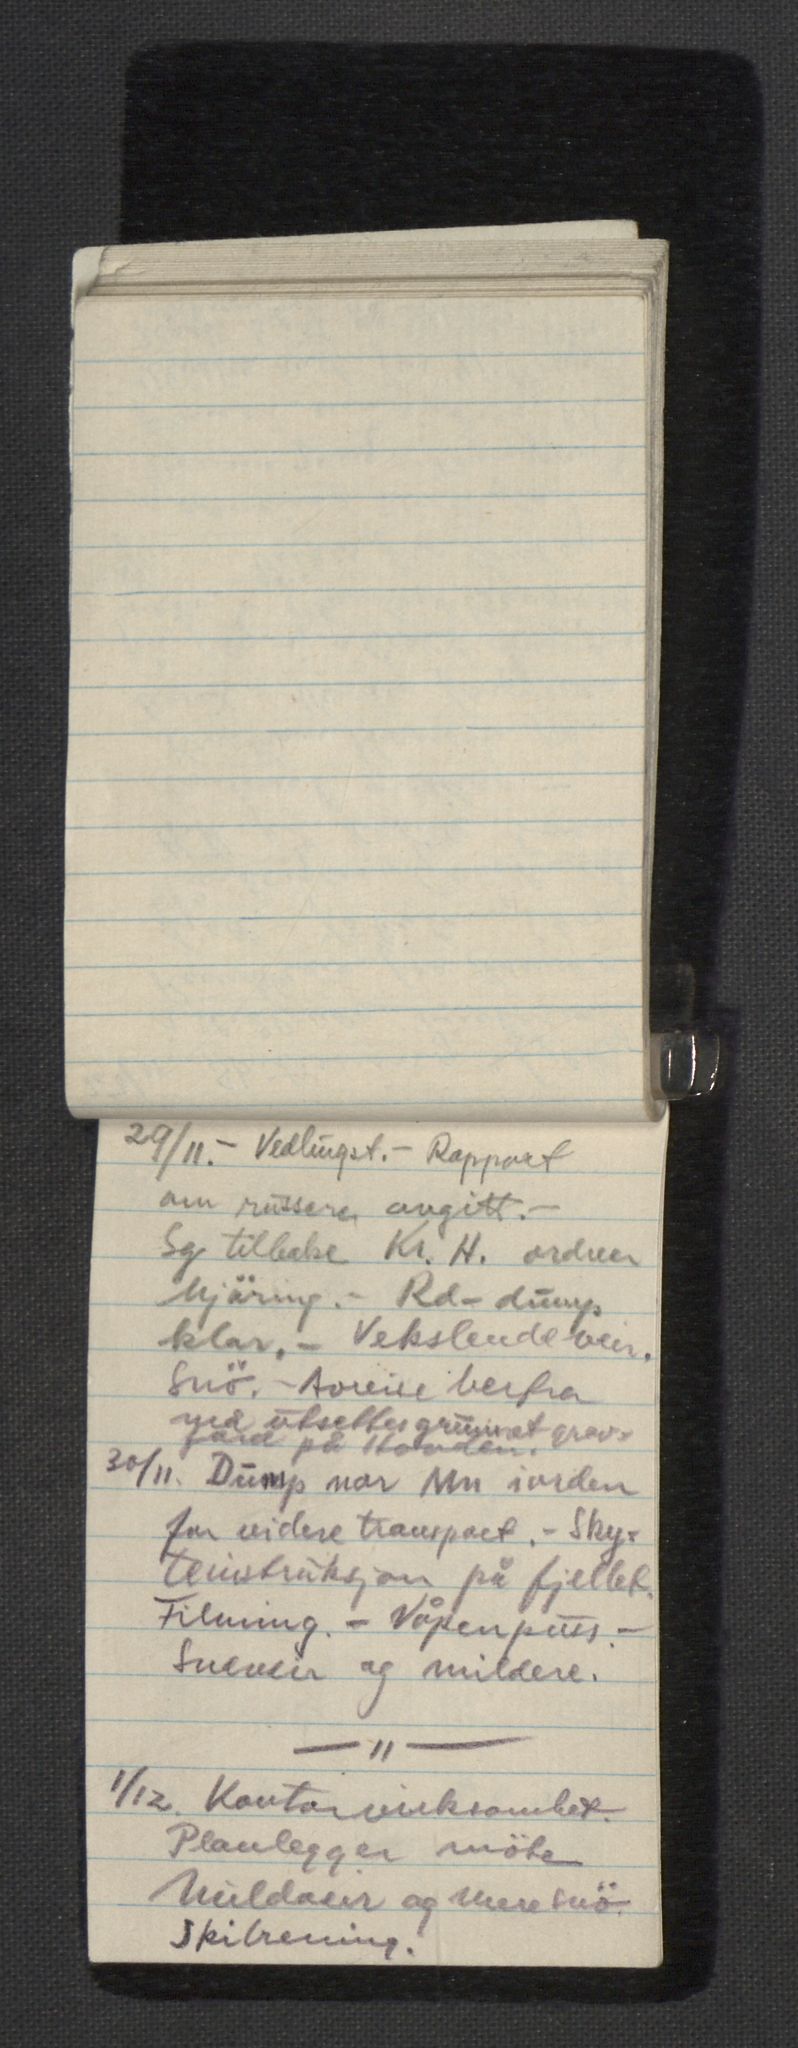 29/11. - Vedhugst. - Rapport
om russere avgitt. -
Sg tilbake Kr. H. ordner
kjöring. - Rd - dump
klar. - Vekslende veir.
Snö. - Avreise herfra
må utsettes grunnet grav-
färd på Honden.
30/11. Dump nor Mn iorden
for videre transport. - Sky-
teinstruksjon på fjellet.
Filming. - Våpenpuss. -
Sneveir og mildere.
— " —
1/12. Kontorvirksomhet.
Planlegger möte
Mildveir og mere snö.
Skitrening.